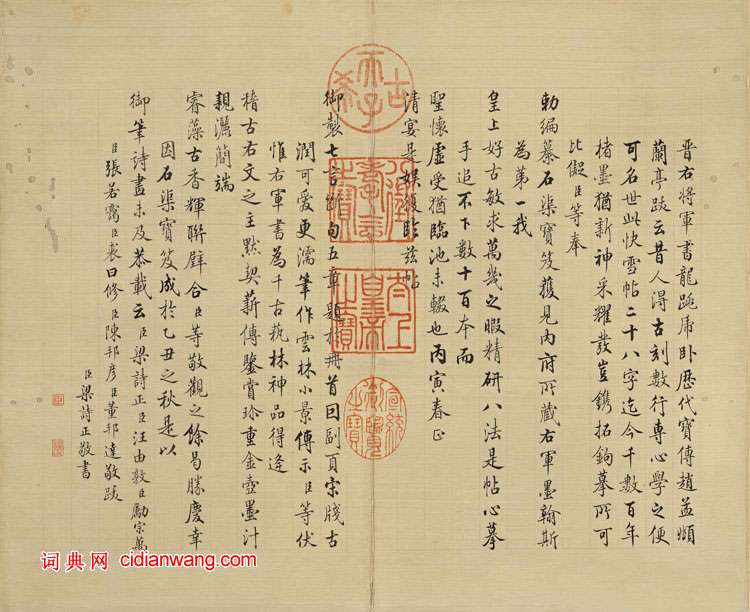 晉右將軍書龍跳虎卧歷代寶傳趙孟頫
蘭亭跋云昔人得古刻數行專心學之便
可名世此快雪帖二十八字迄今千數百年
楮墨猶新神采耀發豈鐫拓鉤摹所可
比儗臣等奉
勅編纂石渠寶笈獲見内府所藏右軍墨翰斯
為第一我
皇上好古敏求萬幾之暇精研八法是帖心摹
手追不下數十百本而
聖懷虛受猶臨池未輟也丙寅春正
清宴是娛復臨茲帖
御製七言斷句五章題於冊首回副頁宋牋古
潤可愛更濡筆作雲林小景傳示臣等伏
惟右軍書為千古萟林神品得逢
稽古右文之主默契薪傳鑒賞珍重金壺墨汁
親灑簡端
睿藻古香輝聯璧合臣等敬觀之餘曷勝慶幸
因石渠寶笈成於乙丑之秋是以
御筆詩畫未及恭載云臣梁詩正臣汪由敦臣勵宗萬
臣張若靄臣裘曰修臣陳邦彥臣董邦達敬跋
臣梁詩正敬書
古稀天子
八徵耄念之寶
太上皇帝之寶
宣統御覽之寶
词典网 cidianwang.com